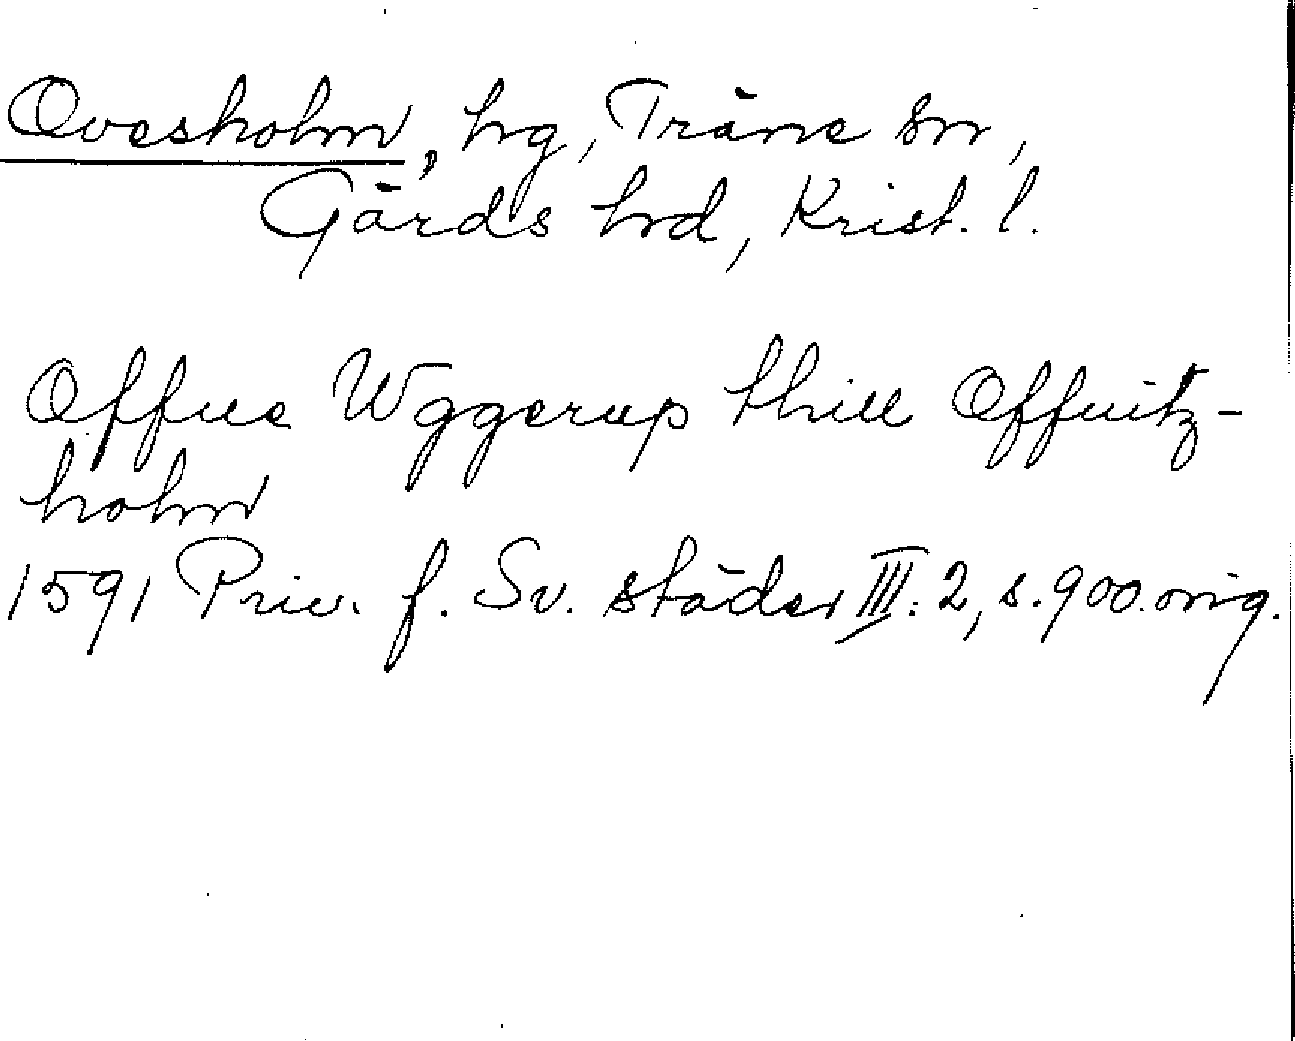 Ovesholm, hg, Träne sn,
Gärds hrd, Krist. l.
Offue Wggerup thill Offuitz-
holm
1591 Priv. f. Sv. städer III:2, s. 900. orig.